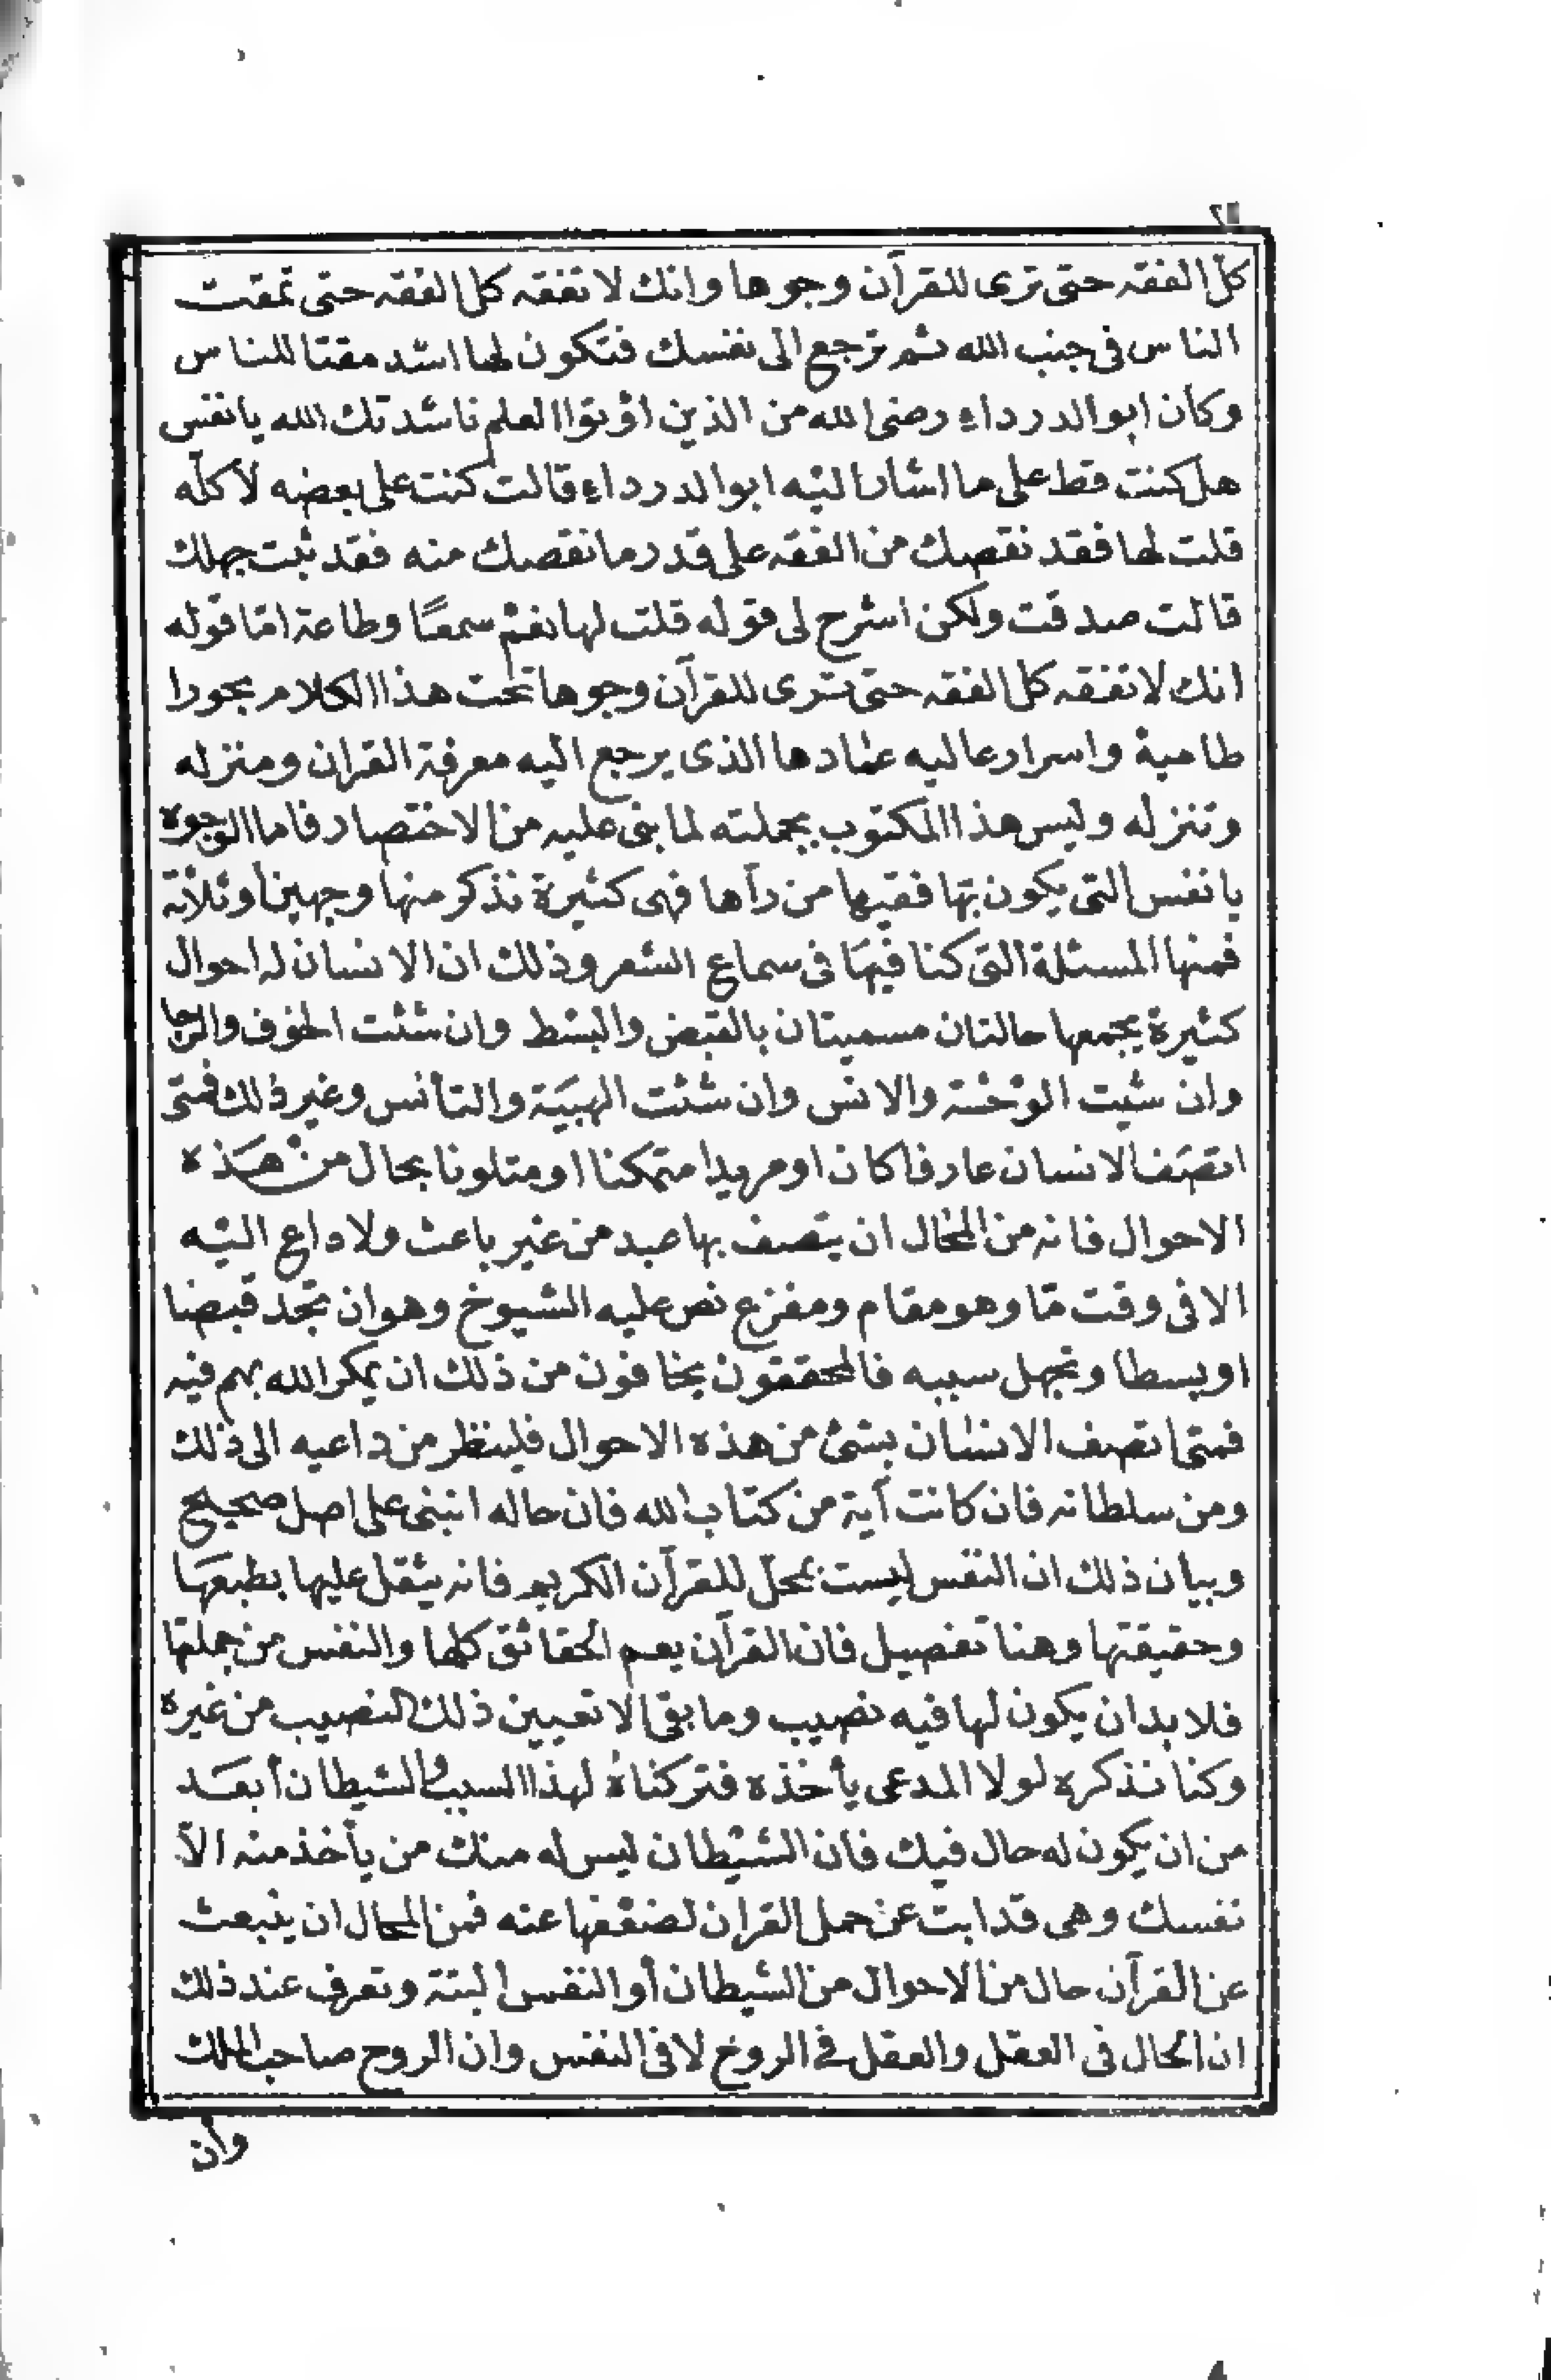 كل الفقه حتى ترى للقرآن وجوها وانك لا تفقه كل الفقه حتى تمقت
الناس فى جنب الله ثم ترجع الى نفسك فتكون لها اشد مقتا للناس
وكان ابو الدرداء رضى الله من الذين اؤتوا العلم ناشدتك الله يا نفس
هل كنت قط على ما اشار اليه ابو الدرداء قالت كنت على بعضه لا كله
قلت لها فقد نقصك من الفقه على قدر ما نقصك منه فقد ثبت جهلك
قالت صدقت ولكن اشرح لى قوله قلت لها نعم سمعًا وطاعة امّا قوله
انك لا تفقه كل الفقه حتى ترى للقرآن وجوها تحت هذا الكلام بحورا
طامية واسرار عاليه عمادها الذى يرجع اليه معرفة القران ومنزله
وتنزله وليس هذا المكتوب بجملته لما بنى عليه من الاختصار فاما الوجوه
يا نفس التى يكون بها فقيها من رآها فهى كثيرة نذكر منها وجهين او ثلاثة
فمنها المسئلة التى كنا فيها فى سماع الشعر وذلك ان الانسان له احوال
كثيرة يجمعها حالتان مسميتان بالقبض والبسط وان شئت الخوف والرجا
وان شيت الوحشة والانس وان شئت الهيبة والتأنس وغير ذلك فمتى
اتصف الانسان عارفا كان او مريدا متمكنا او متلونا بحال من هذه
الاحوال فانه من المحال ان يتصف بها عبد من غير باعث ولا داع اليه
الا فى وقت مّا وهو مقام ومفزع نص عليه الشيوخ وهو ان تجد قبضا
او بسطا وتجهل سببه فالمحققون يخافون من ذلك ان يمكر الله بهم فيه
فمتى اتصف الانسان بشئ من هذه الاحوال فلينظر من داعيه الى ذلك
ومن سلطانه فان كانت آية من كتاب الله فان حاله انبنى على اصل صحيح
وبيان ذلك ان النفس ليست بمحل للقرآن الكريم فانه يثقل عليها بطبعها
وحقيقتها وهنا تفصيل فان القرآن يعم الحقائق كلها والنفس من جملتها
فلا بد ان يكون لها فيه نصيب وما بقى الا تعيين ذلك النصيب من غيره
وكنا نذكره لولا المدعى يأخذه فتركناه لهذا السبب والشيطان أبعد
من ان يكون له حال فيك فان الشيطان ليس له منك من يأخذ منه الآ
نفسك وهى قد ابت عن حمل القران لضعفها عنه فمن المحال ان ينبعث
عن القرآن حال من الاحوال من الشيطان أو النفس البتة وتعرف عند ذلك
ان الحال فى العقل والعقل فى الروح لا فى النفس وان الروح صاحب الملك
وان